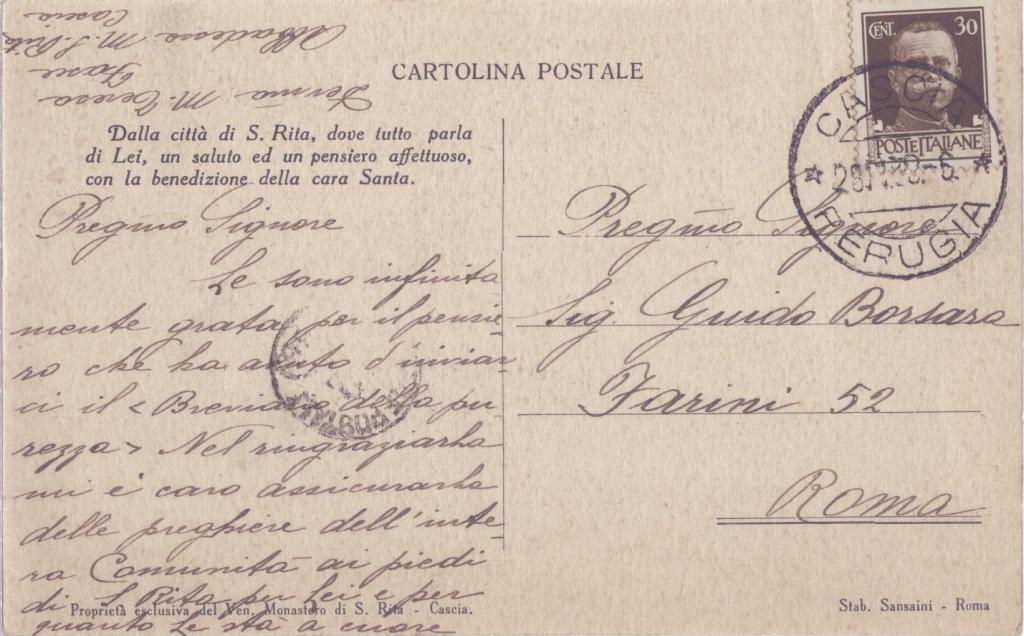 CARTOLINA POSTALE
Dalla città di S. Rita, dove tutto parla
di Lei, un saluto ed un pensiero affettuoso,
con la benedizione della cara Santa.
Pregmo Signore
Le sono infinita
mente grata per il pensie-
ro che ha avuto d'inviar
ci il < Breviario della pu-
rezza > Nel ringraziarla
mi è caro assicurarla
delle preghiere dell'inte-
ra Comunità ai piedi
di S. Rita per Lei e per
quanto Le sta a cuore
M. Teresa
Abbadessa M. S. Rita
Cascia
CENT. 30
POSTE ITALIANE
CASCIA
PERUGIA
Pregmo Signore
Sig. Guido Borsara
Farini 52
Roma
Proprietà esclusiva del Ven. Monastero di S. Rita - Cascia.
Stab. Sansaini - Roma